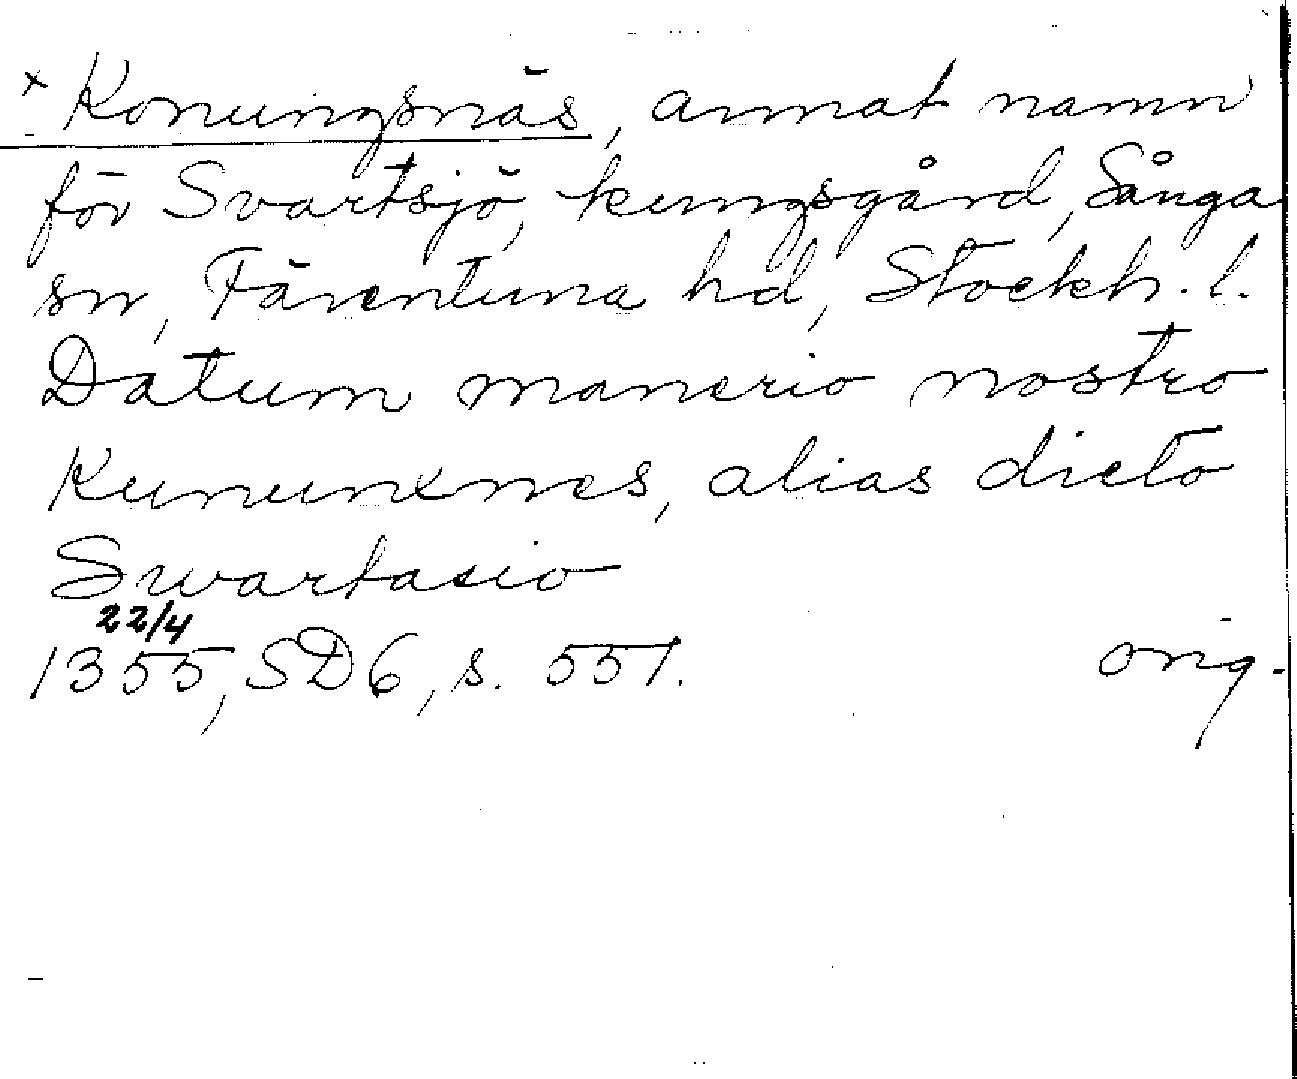 x Konungsnäs, annat namn
för Svartsjö, kungsgård, Sånga
sn, Färentuna hd, Stockh. l.
Datum manerio nostro
Kununxnes, alias dicto
Swartasio
22/4
1355, SD6, s. 551. orig.